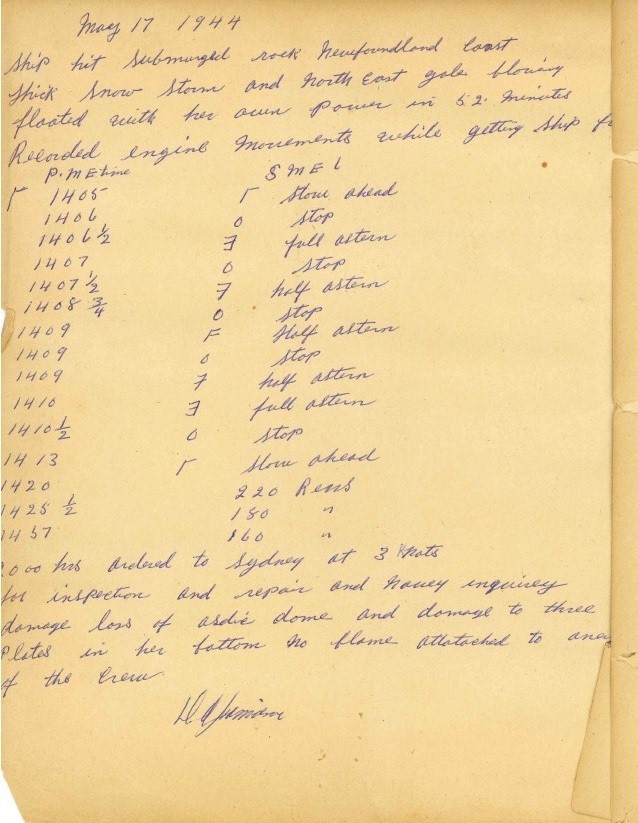 May 17 1944
Ship hit Submurged rock Newfoundland Coast
thick Snow Storm and North East gale blowing
floated with her own power in 52 minutes
Recorded engine movements while getting ship
P.M Etime S M E I
Γ 1405 Γ Slow ahead
1406 0 Stop
1406 1/2 full astern
1407 0 Stop
1407 1/2 half astern
1408 3/4 0 Stop
1409 F Half astern
1409 0 Stop
1409 half astern
1410 full astern
1410 1/2 0 Stop
1413 Γ Slow ahead
1420 220 Revs
1425 1/2 180 "
1437 160 "
2000 hrs ordered to Sydney at 3 Knots
for inspection and repair and Navey inquirey
damage loss of asdic dome and damage to three
Plates in her bottom No blame attatached to aney
of the Crew